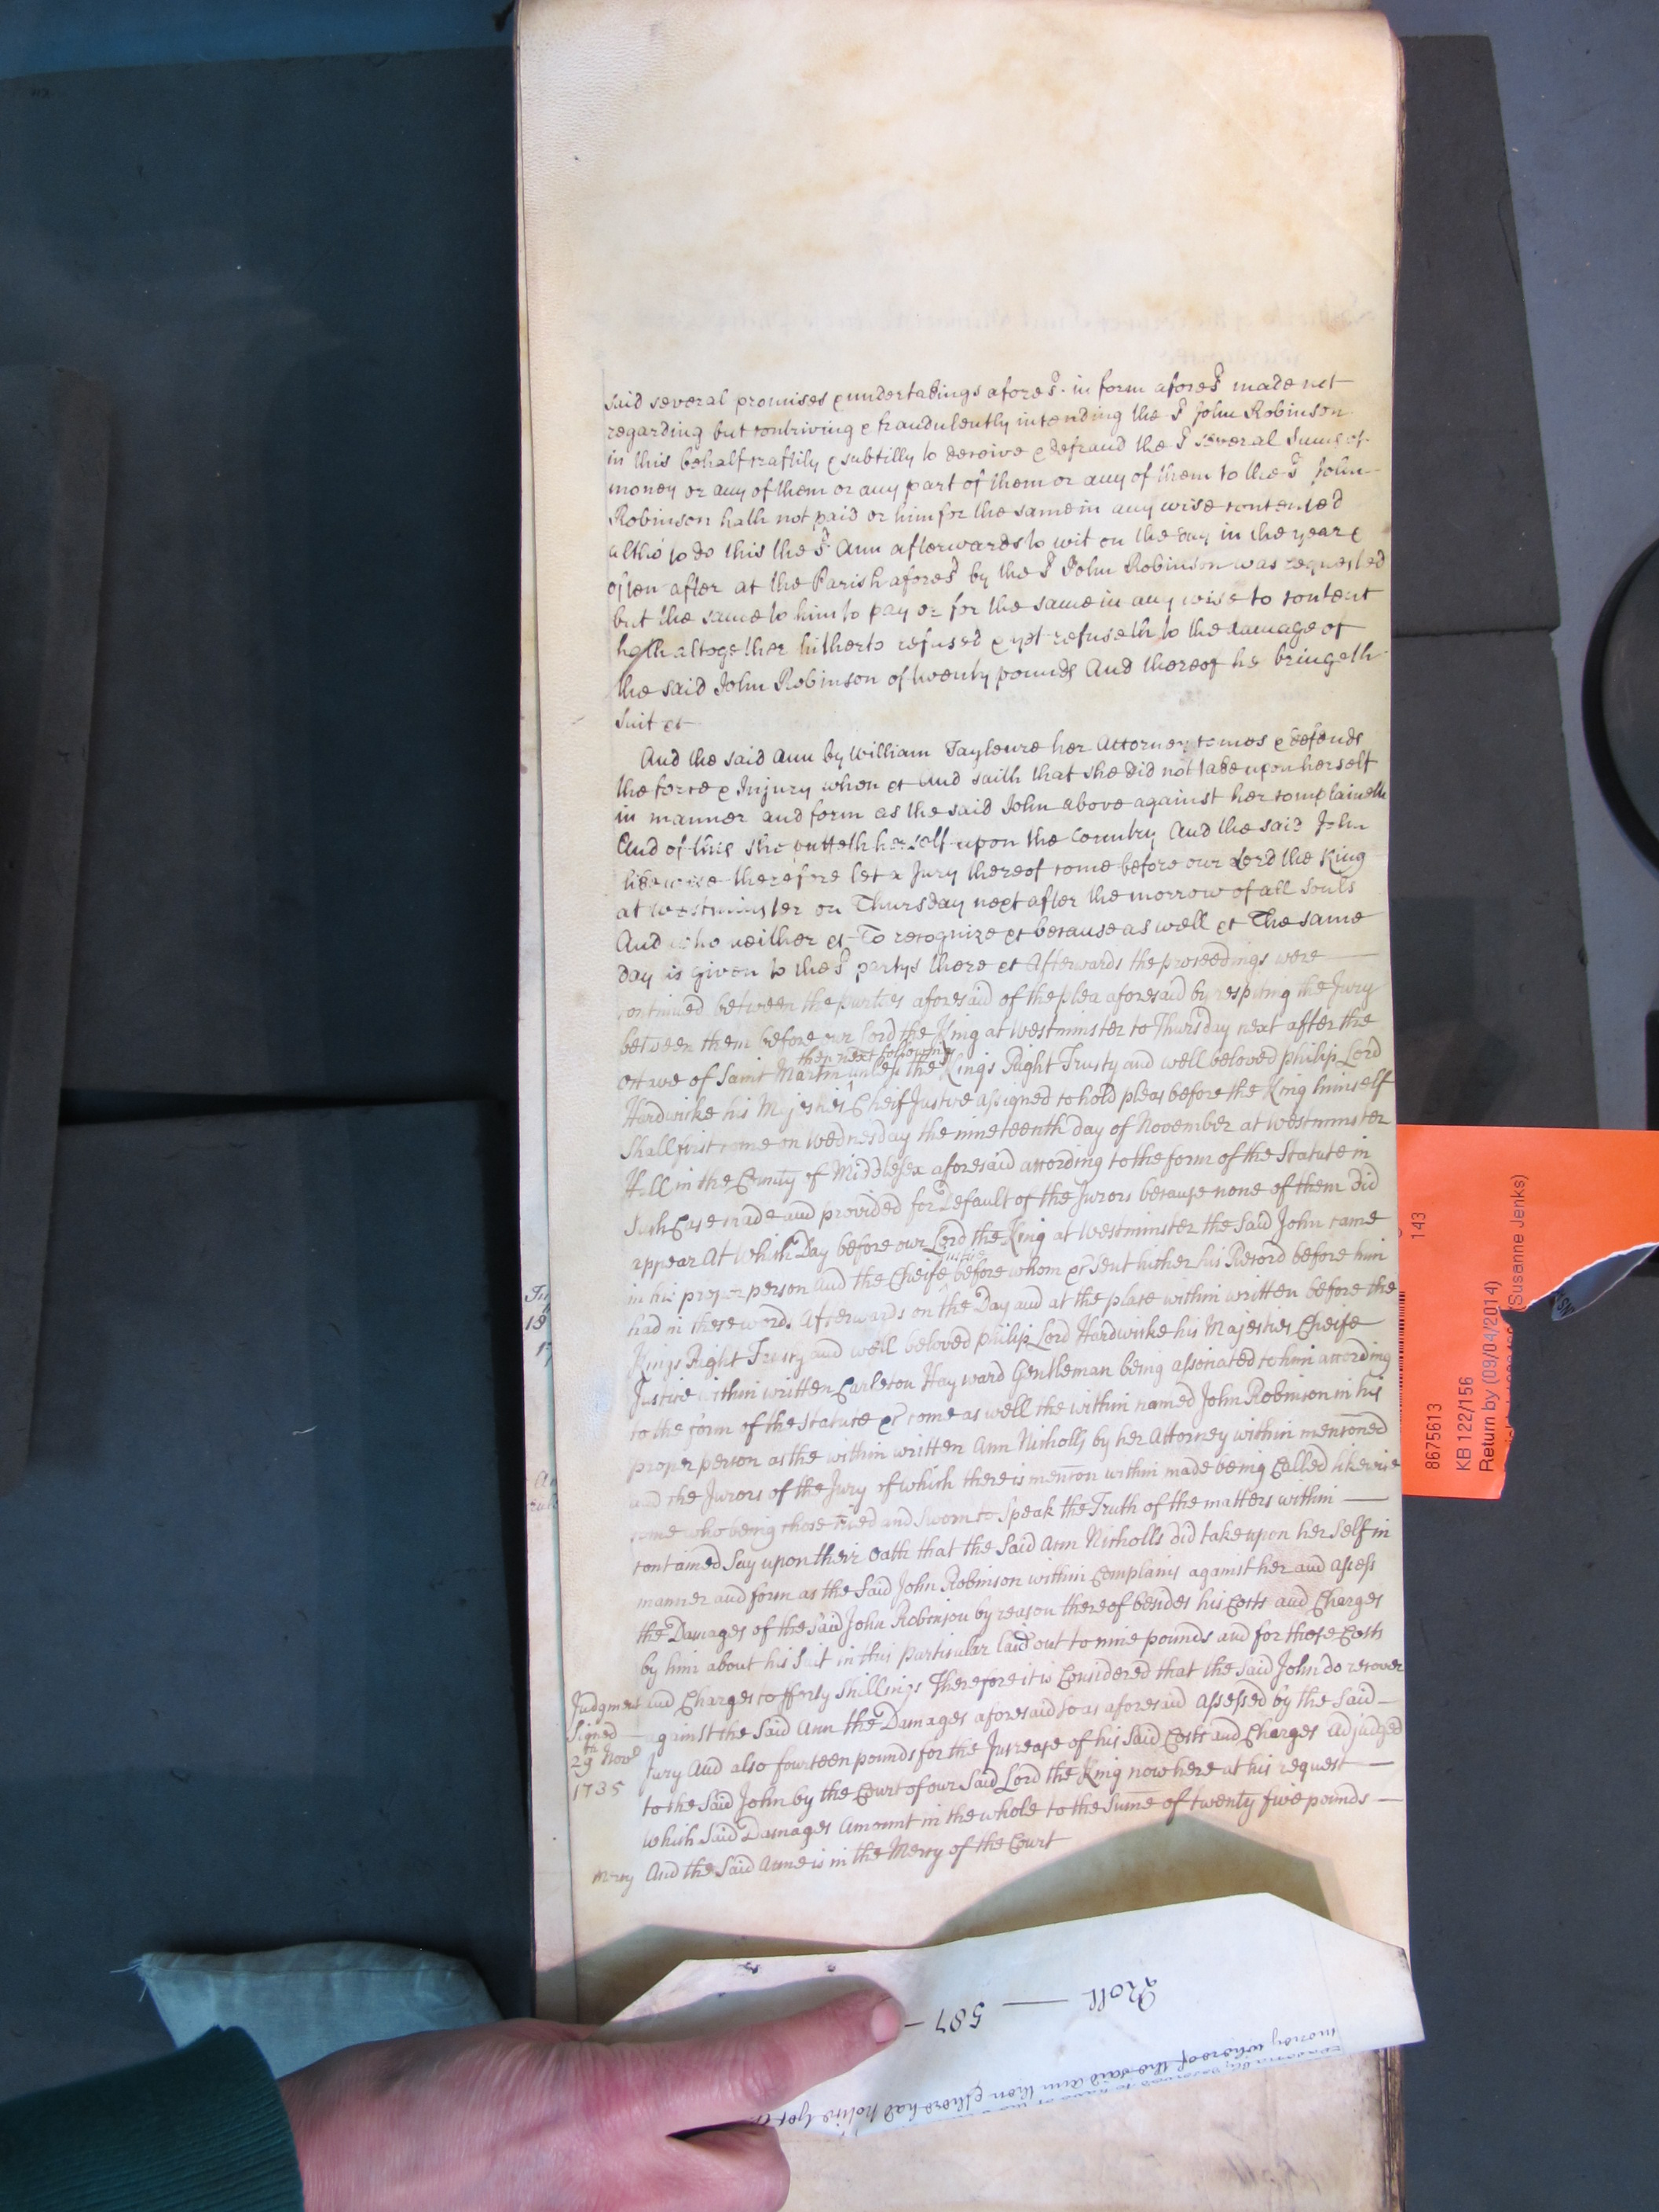 said several promises & undertakings afores'd in form afores'd made not
regarding but contriving & fraudulently intending the s'd John Robinson
in this behalf craftily & subtilly to deceive & defraud the s'd several Sumes of
money or any of them or any part of them or any of them to the s'd John
Robinson hath not paid or him for the same in any wise contented
altho' to do this the s'd Ann afterwards to wit on the day in the year &
often after at the Parish afores'd by the s'd John Robinson was requested
but the same to him to pay or for the same in any wise to content
hath altogether hitherto refused & yet refuseth to the damage of
the said John Robinson of twenty pounds And thereof he bringeth
suit &c
And the said Ann by William Tayleure her Attorney comes & defends
the force & Injury when &c And saith that she did not take upon herself
in manner and form as the said John above against her complaineth
And of this she putteth herself upon the Country And the said John
likewise therefore let a Jury thereof come before our Lord the King
at Westminster on Thursday next after the morrow of all Souls
And who neither &c To recognize &c because as well &c The same
day is given to the s'd partys there &c Afterwards the proceedings were
continued between the parties aforesaid of the plea aforesaid by respiting the Jury
between them before our Lord the King at Westminster to Thursday next after the
then next following
octave of Saint Martin unless the Kings Right Trusty and well beloved philip Lord
Hardwicke his Majesties Cheif Justice assigned to hold pleas before the King himself
Shall first come on Wednesday the nineteenth day of November at Westminster
Hall in the County of Middlesex aforesaid according to the form of the Statute in
Such Case made and provided for Default of the Jurors because none of them did
appear At which Day before our Lord the King at Westminster the Said John came
Justice
in his proper person And the Cheife before whom &c Sent hither his Record before him
had in these words Afterwards on the Day and at the place within written before the
Kings Right Trusty and well beloved philip Lord Hardwicke his Majesties Cheife
Justice within written Carleton Hayward Gentleman being associated to him according
to the form of the Statute &c come as well the within named John Robinson in his
proper person as the within written Ann Nicholls by her Attorney within mentioned
and the Jurors of the Jury of which there is mention within made being Called likewise
come who being chose tried and Sworn to Speak the Truth of the matters within
contained Say upon their Oath that the Said Ann Nicholls did take upon her Self in
manner and form as the Said John Robinson within Complains against her and assess
the Damages of the said John Robinson by reason thereof besides his Costs and Charges
by him about his Suit in this particular laid out to nine pounds and for those Costs
and Charges to fforty Shillings Therefore it is Considered that the Said John do recover
against the Said Ann the Damages aforesaid so as aforesaid Assessed by the Said
Jury And also fourteen pounds for the Increase of his Said Costs and Charges Adjudged
to the Said John by the Court of our Said Lord the King now here at his request
which Said Damages Amount in the whole to the Sume of twenty five pounds
And the Said Anne is in the Mercy of the Court
Judgment
Signed
29th Nov'r
1735
Mercy
Roll 587
money whereof the said Ann then & there had notice
8675613
143
KB 122/156
Return by (09/04/2014)
(Susanne Jenks)